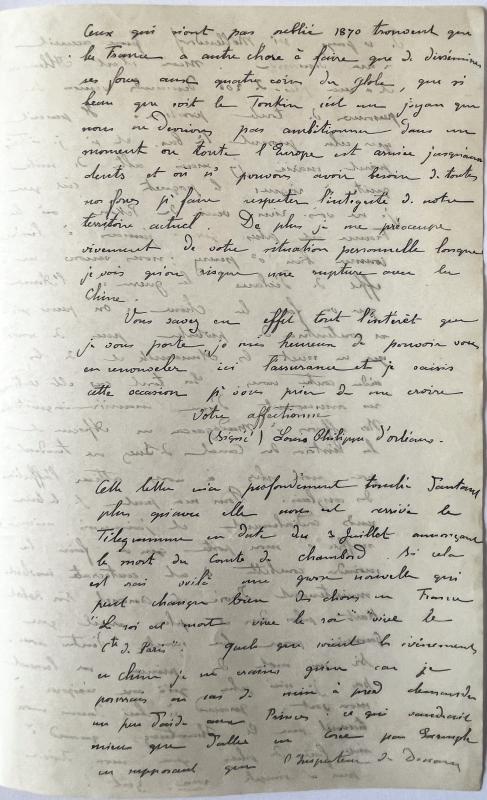 Ceux qui n'ont pas oublié 1870 trouvent que
la France a autre chose à faire que de disséminer
ses forces aux quatre coins du globe, que si
beau que soit le Tonkin c'est un joyau que
nous ne devrions pas ambitionner dans un
moment où toute l'Europe est armée jusqu'aux
dents et où ns pouvons avoir besoin de toutes
nos forces pr faire respecter l'intégrité de notre
territoire actuel De plus je me préoccupe
vivement de votre situation personnelle lorsque
je vois qu'on risque une rupture avec la
Chine.
Vous savez en effet tout l'intérêt que
je vous porte, je suis heureux de pouvoir vous
en renouveler ici l'assurance et je saisis
cette occasion pr vous prier de me croire
Votre affectionné
(Signé) Louis Philippe d'orléans.
Cette lettre m'a profondément touché d'autant
plus qu'avec elle nous est arrivé le
Télégramme en date du 3 Juillet annonçant
la mort du Comte de Chambord si cela
est vrai voilà une grosse nouvelle qui
peut changer bien des choses en France
"Le roi est mort vive le roi" "vive le
Cte de Paris". Quels que soient les évènements
en Chine je ne crains guère car je
pourrais en cas de mise à pied demander
un peu d'aide aux Princes; ce qui vaudrait
mieux que d'aller en Corée par Exemple
en supposant que l'Inspecteur de